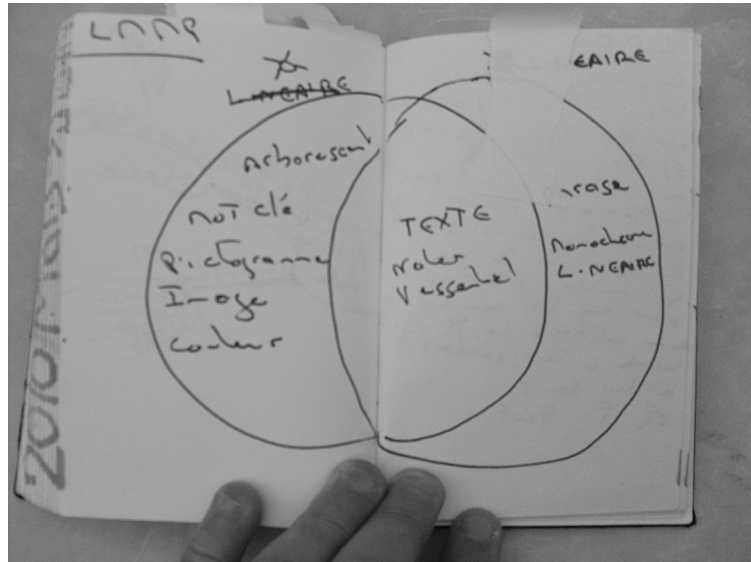 LINEAIRE
EAIRE
Arborescent
mot clé
Pictogramme
Image
Couleur
TEXTE
Noter
l'essentiel
rase
Monochrome
LINEAIRE